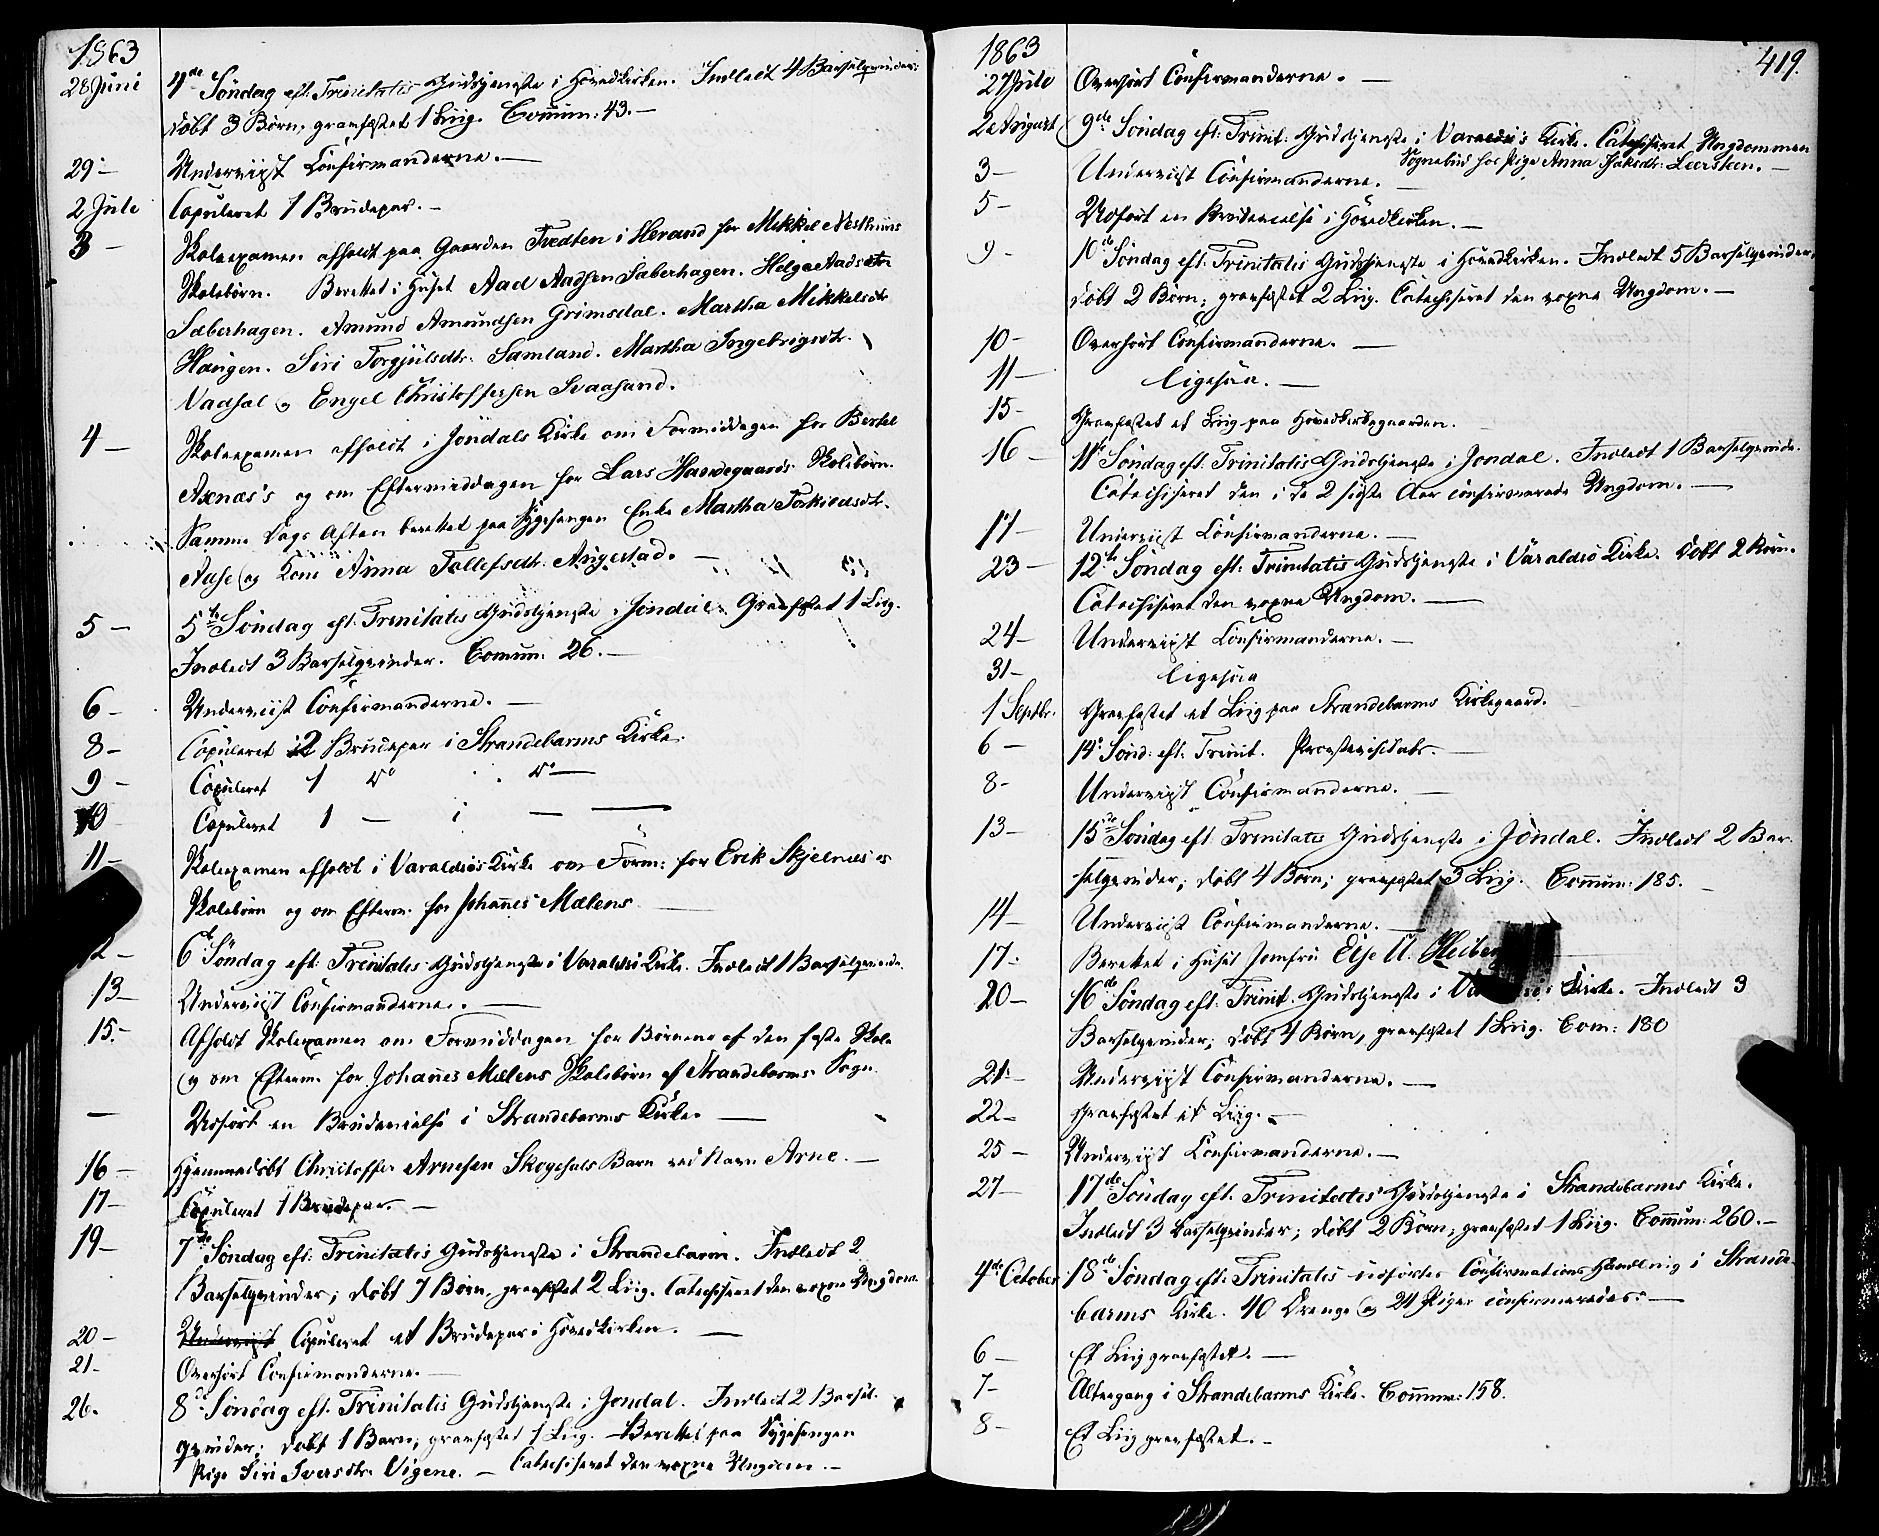 1863
28 Juni 4de Søndag eft: Trinitatis Gudstjeneste i Hovedkirken. Indledt 4 Barselqvinder;
døbt 3 Børn, gravfæstet 1 Liig. Commun: 43.
29 — Underviist Confirmanderne. —
2 Jule Copuleret 1 Brudepar. —
3 — Skoleexamen afholdt paa Gaarden Tvedten i Herand for Mikkel Nesthuus
Skolebørn. Berettet i Huset Aad Aadsen Sæberhagen. Helga Aadsdtr
Sæberhagen. Amund Amundsen Grimsdal. Martha Mikkelsdtr
Haugen. Siri Torgjulsdtr: Samland. Martha Ingebrigtsdtr.
Vadsel og Engel Christoffersen Svaasand.
4 — Skoleexamen afholdt i Jondals Kirke om Formiddagen for Bertel
Axnæs's og om Eftermiddagen for Lars Haavegaards Skolebørn.
Samme Dags Aften berettet paa Sygesengen Enke Martha Torkildsdtr.
Aase og Kone Anna Tollefsdtr. Augestad. —
5 — 5te Søndag eft: Trinitatis Gudstjeneste i Jondal. Gravfæstet 1 Liig.
Indledt 3 Barselqvinder. Commun: 26. —
6 — Underviist Confirmanderne. —
8 — Copuleret 2 Brudepar i Strandebarms Kirke.
9 — Copuleret 1 do do —
10 Copuleret 1 — i — —
11 — Skoleexamen afholdt i Varaldsøs Kirke om Form: for Erik Skjelnæs's
Skolebørn og om Efterm. for Johannes Mælens —
12 — 6te Søndag eft: Trinitatis Gudstjeneste i Varaldsø Kirke. Indledt 1 Barselqvinde.
13 — Underviist Confirmanderne. —
15. — Afholdt Skoleexamen om Formiddagen for Børnene af den faste Skole
og om Efterm. for Johannes Mælens Skolebørn af Strandebarms Sogn.
— Udført en Brudevielse i Strandebarms Kirke. —
16 — Hjemmedøbt Christoffer Arnesen Skogesels Barn ved Navn Arne. —
17 — Copuleret 1 Brudepar. —
19 — 7de Søndag eft: Trinitatis Gudstjeneste i Strandebarm. Indledt 2
Barselqvinder; døbt 7 Børn, gravfæstet 2 Liig. Catechiseret den voxne Ungdom.
20 — Underviist Copuleret et Brudepar i Hovedkirken. —
21 — Overhørt Confirmanderne. —
26. 8de Søndag eft. Trinitatis Gudstjeneste i Jondal. Indledt 2 Barsel-
qvinder; døbt 1 Barn; gravfæstet 1 Liig. Berettet paa Sygesengen
Pige Siri Iversdtr. Vigene. — Catechiseret den voxne Ungdom. —
1863 419.
27 Jule Overhørt Confirmanderne. —
2de August 9de Søndag eft: Trinit: Gudstjeneste i Varaldsø's Kirke. Catechiseret Ungdommen
Sognebud hos Pige Anna Leersteen. —
3 — Underviist Confirmanderne. —
5 — Udført en Brudevielse i Hovedkirken. —
9 — 10de Søndag eft: Trinitatis Gudstjeneste i Hovedkirken. Indledt 5 Barselqvinder,
døbt 2 Børn; gravfæstet 2 Liig. Catechiseret den voxne Ungdom. —
10 — Overhørt Confirmanderne. —
11 — ligesaa. —
15 — Gravfæstet et Liig paa Hovedkirkegaarden.
16 — 11te Søndag eft: Trinitatis Gudstjeneste i Jondal. Indledt 1 Barselqvinde.
Catechiseret den i de 2 sidste Aar confirmerede Ungdom. —
17 — Underviist Confirmanderne. —
23 — 12te Søndag eft: Trinitatis Gudstjeneste i Varaldsø Kirke. Døbt 2 Børn.
Catechiseret den voxne Ungdom. —
24 — Underviist Confirmanderne. —
31 — ligesaa
1 Septbr. Gravfæstet et Liig paa Strandebarms Kirkegaard.
6 — 14de Sønd: eft. Trinit. Provstevisitats. —
8 — Underviist Confirmanderne. —
13 — 15de Søndag eft. Trinitatis Gudstjeneste i Jondal. Indledt 2 Bar-
selqvinder; døbt 4 Børn; gravfæstet 3 Liig. Commun: 185. —
14 — Underviist Confirmanderne. —
17 — Berettet i Huset Jomfru Else U. Heiberg
20 — 16de Søndag eft. Trinit. Gudstjeneste i Kirke. Indledt 3
Barselqvinder; døbt 4 Børn, gravfæstet 1 Liig. Com: 180
21 — Underviist Confirmanderne. —
22 — Gravfæstet et Liig. —
25 — Underviist Confirmanderne. —
27 — 17de Søndag eft. Trinitatis Gudstjeneste i Strandebarms Kirke.
Indledt 3 Barselqvinder; døbt 2 Børn, gravfæstet 1 Liig. Commun: 260. —
4de October 18de Søndag eft: Trinitatis udførtes Confirmations Handling i Strande-
barms Kirke. 40 Drenge og 24 Piger confirmeredes. —
6 — Et Liig gravfæstet. —
7 — Altergang i Strandebarms Kirke. Commun: 158.
8 — Et Liig gravfæstet. —